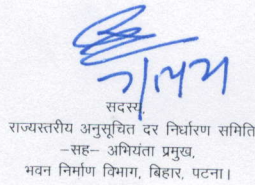 सदस्य,
राज्यस्तरीय अनुसूचित दर निर्धारण समिति
–सह– अभियंता प्रमुख,
भवन निर्माण विभाग, बिहार, पटना।